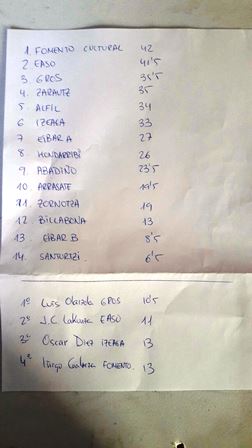 1 FOMENTO CULTURAL 42
2 EASO 41'5
3 GROS 35'5
4. ZARAUTZ 35
5. ALFIL 34
6 IZEAGA 33
7 EIBAR A 27
8. HONDARRIBI 26
9. ABADIÑO 23'5
10. ARRASATE 19'5
11. ZORNOTZA 19
12 BILLABONA 13
13. EIBAR B 8'5
14. SANTURTZI. 6'5
1º Luis GROS 10'5
2º J.C. Lakunza EASO 11
3º Oscar Diez IZEAGA 13
4º Iñigo FOMENTO. 13